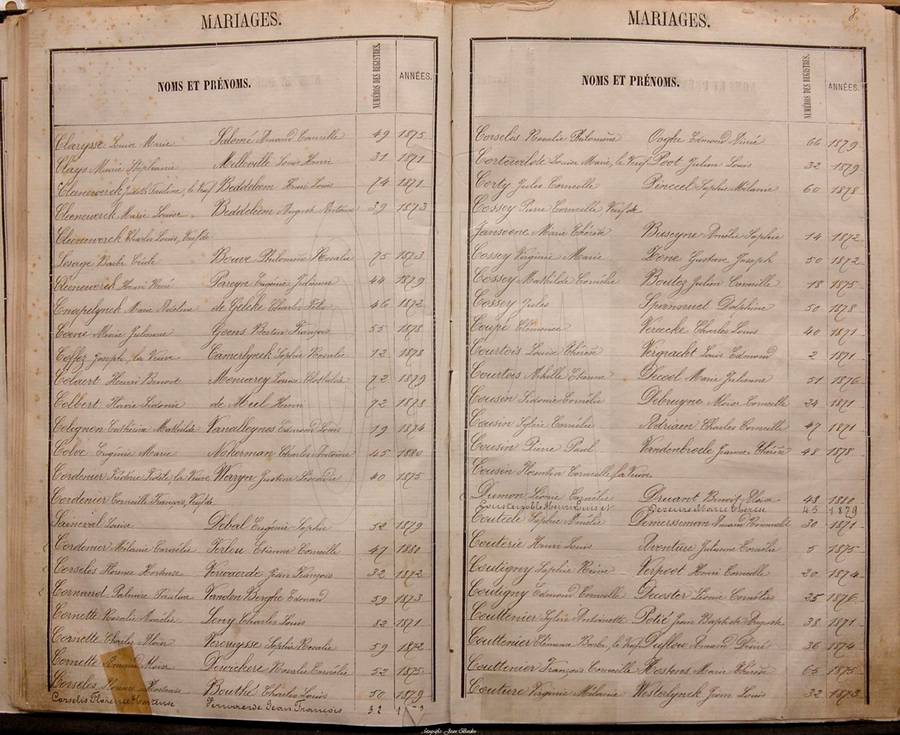 MARIAGES.
NOMS ET PRÉNOMS.
NUMÉROS DES REGISTRES.
ANNÉES.
Clarysse Louis Marie Salomé Amand Corneille 49 1875
Clays Marie Stéphanie Milleville Louis Henri 31 1871
le Veuf Beddeleem Louis 74 1871
Cleenewerck Marie Louise Beddeleem August Antoine 39 1873
Cleenewerck Charles Louis, Veuf de
Lesage Barbe Cécile Douve Philomène Rosalie 75 1873
Cleenewerck Henri René Pareyn Eugénie Julienne 44 1879
Marie Rosalie de Gélcke Charles Félix 46 1872
Coene Marie Julienne Goens François 55 1878
Coffez Joseph, la Veuve Camerlynck Sophie Rosalie 12 1878
Colaert Henri Benoit Louise Clothilde 72 1879
Colbert Marie Sidonie de Meel Henri 72 1873
Colignon Cathérine Mathilde Vanalleynes Edmond Louis 19 1874
Colve Eugénie Marie Nokerman Charles Antoine 45 1880
Cordenier la Veuve Werryn Justine Léocadie 40 1875
Cordenier Corneille François, Veuf de
Louise Debal Eugénie Sophie 52 1879
Cordenier Mélanie Cornélie Terlou Etienne Corneille 47 1880
Corselis Florence Hortense Verwaerde Jean François 32 1872
Cornard Palmire Vanden Berghe Edouard 59 1873
Cornette Rosalie Amélie Leny Charles Louis 82 1871
Cornette Charles Vereruysse Sophie Rosalie 59 1872
Cornette Rosalie Cornélie 52 1875
Corselis Bouthé Charles Louis 50 1879
Corselis Florence Hortense Verwaerde Jean François 32
MARIAGES.
8
NOMS ET PRÉNOMS.
NUMÉROS DES REGISTRES.
ANNÉES.
Corselis Rosalie Philomène Ooghe Edmond Aimé 66 1879
Cortewilde Louise Marie, le Veuf Poot Julien Louis 32 1879
Corty Jules Corneille Pinceel Sophie Mélanie 60 1878
Cossey Pierre Corneille Veuf de
Janssoone Marie Thérèse Buseyne Amélie Sophie 14 1872
Cossey Virginie Marie Gustave Joseph 50 1872
Cossey Mathilde Cornélie Boutez Julien Corneille 18 1875
Cossey Jules Spanneut Delphine 50 1878
Coupé Clémence Vereecke Charles Louis 40 1871
Courtois Louise Thérèse Vergracht Louis Edmond 2 1871
Courtois Achille Etienne Ducol Marie Julienne 51 1876
Cousin Sidonie Cornélie Debruyne Aloise Corneille 24 1871
Cousin Sylvie Cornélie Adriaen Charles Corneille 47 1871
Cousin Pierre Paul Vandenbroele Jeanne Thérèse 48 1878
Cousin Florentin Corneille la Veuve
Dumon Léonie Cornélie Druant Benoit 43 1880
45 1879
Couteele Sophie Amélie Amand 30 1871
Couterie Henri Louis Aventure Julienne Cornélie 5 1875
Coutigny Sophie Reine Verpoot Henri Corneille 20 1874
Coutigny Edmond Corneille Duester Léonie Cornélie 25 1876
Couttenier Sylvie Antoinette Potié Jean Baptiste August 38 1871
Couttenier Clémence Barbe, le Veuf Duflou Amand Désiré 36 1874
Couttenier François Corneille Hostens Marie Thérèse 65 1875
Couture Virginie Mélanie Westerlynck Jean Louis 32 1873